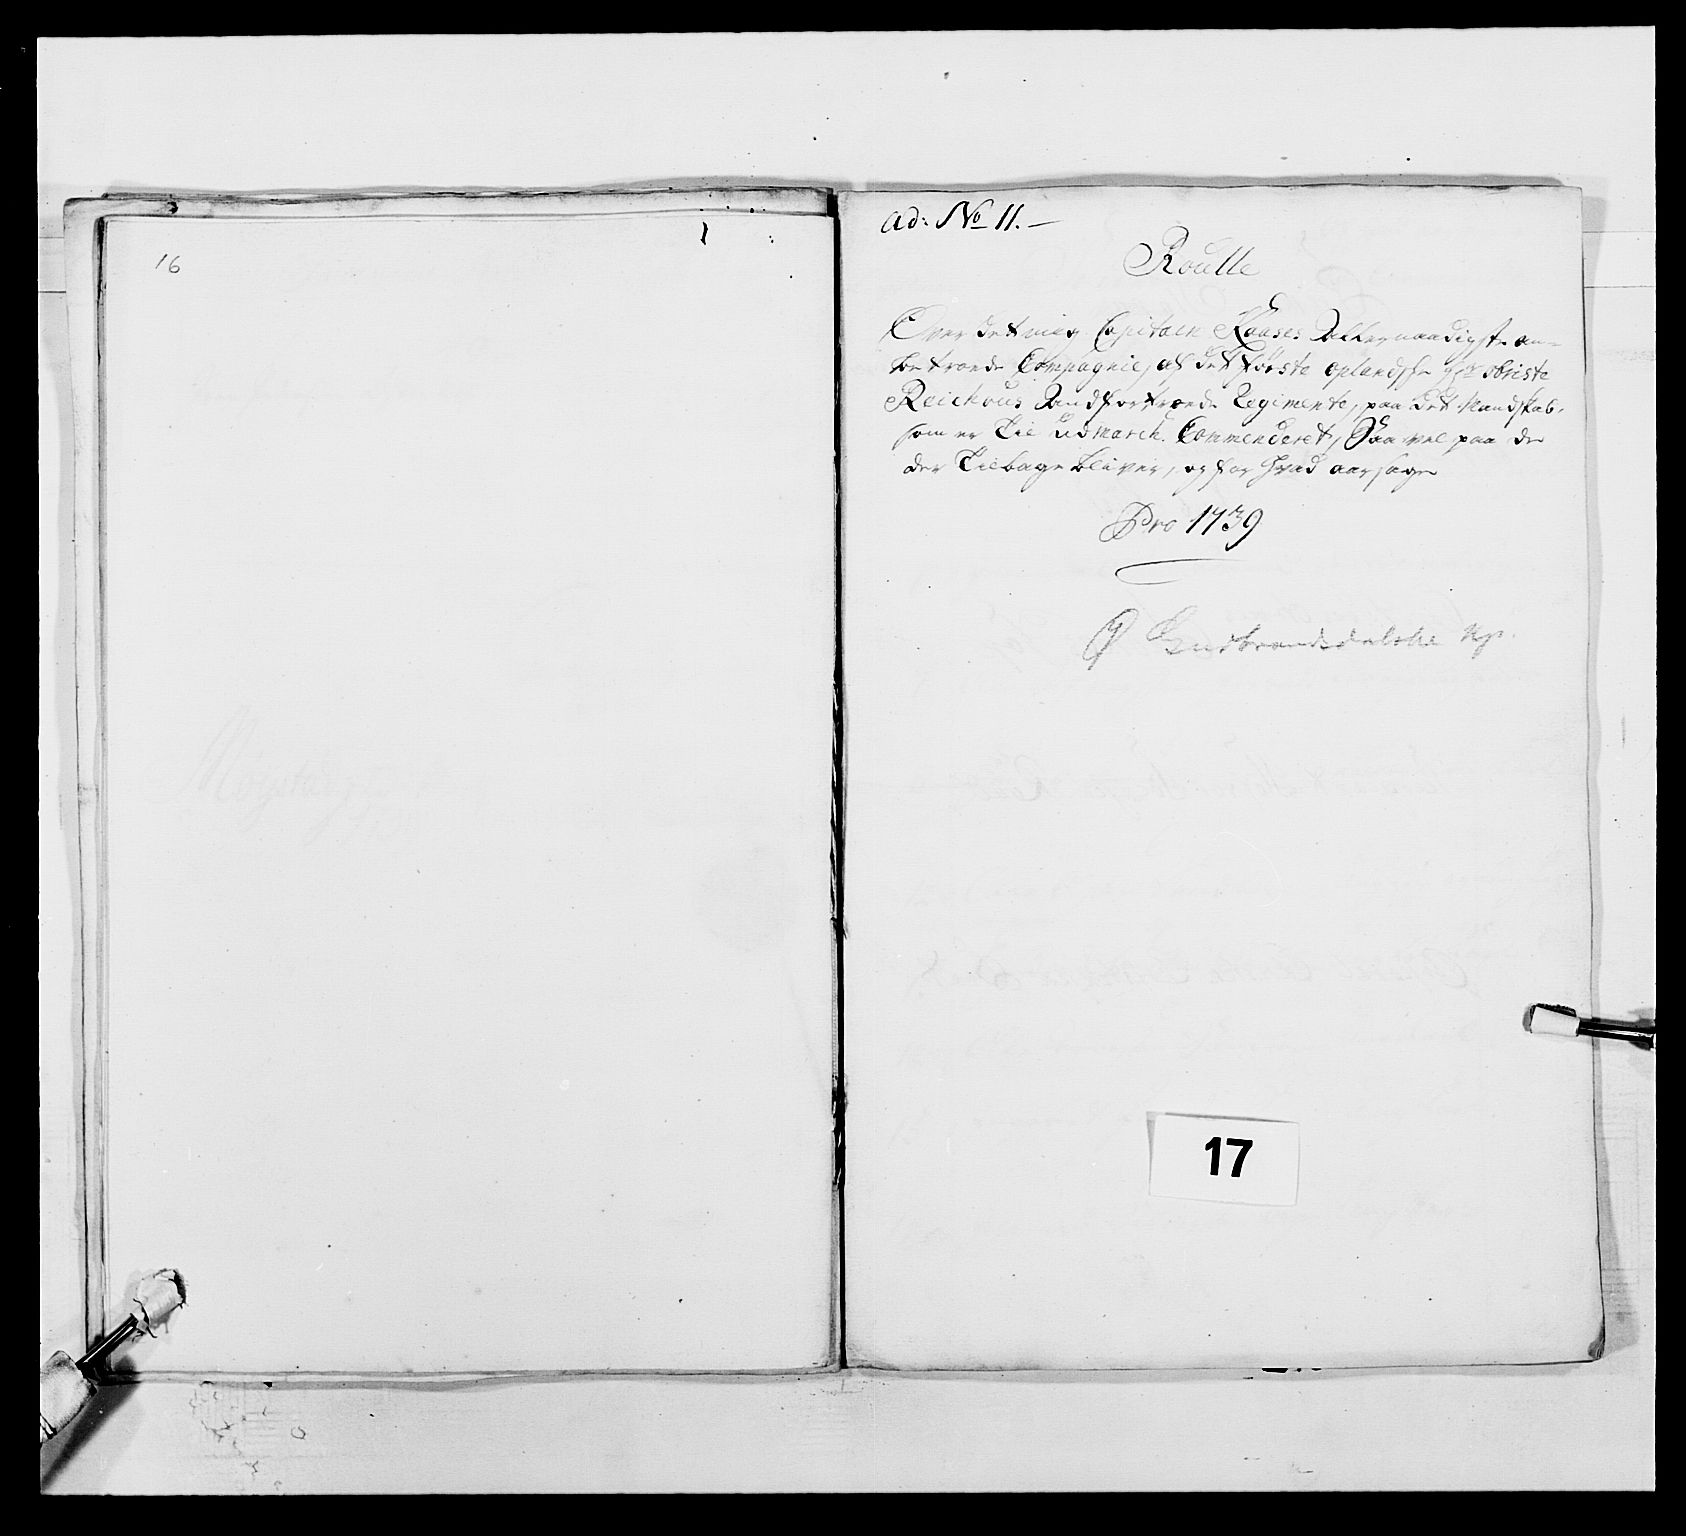 16
ad: No 11. —
Roulle
Over det mig Capitain Kaases Allernaadigst an=
betroede Compagnie, af det første oplandske Hr obriste
Reichous Regimente, paa det Mandskab,
som er til udmarch Commenderet, Saa vel paa de
der tilbage bliver, og for hvad aarsage
Pro 1739
Gudbrandsdalske Kp.
17